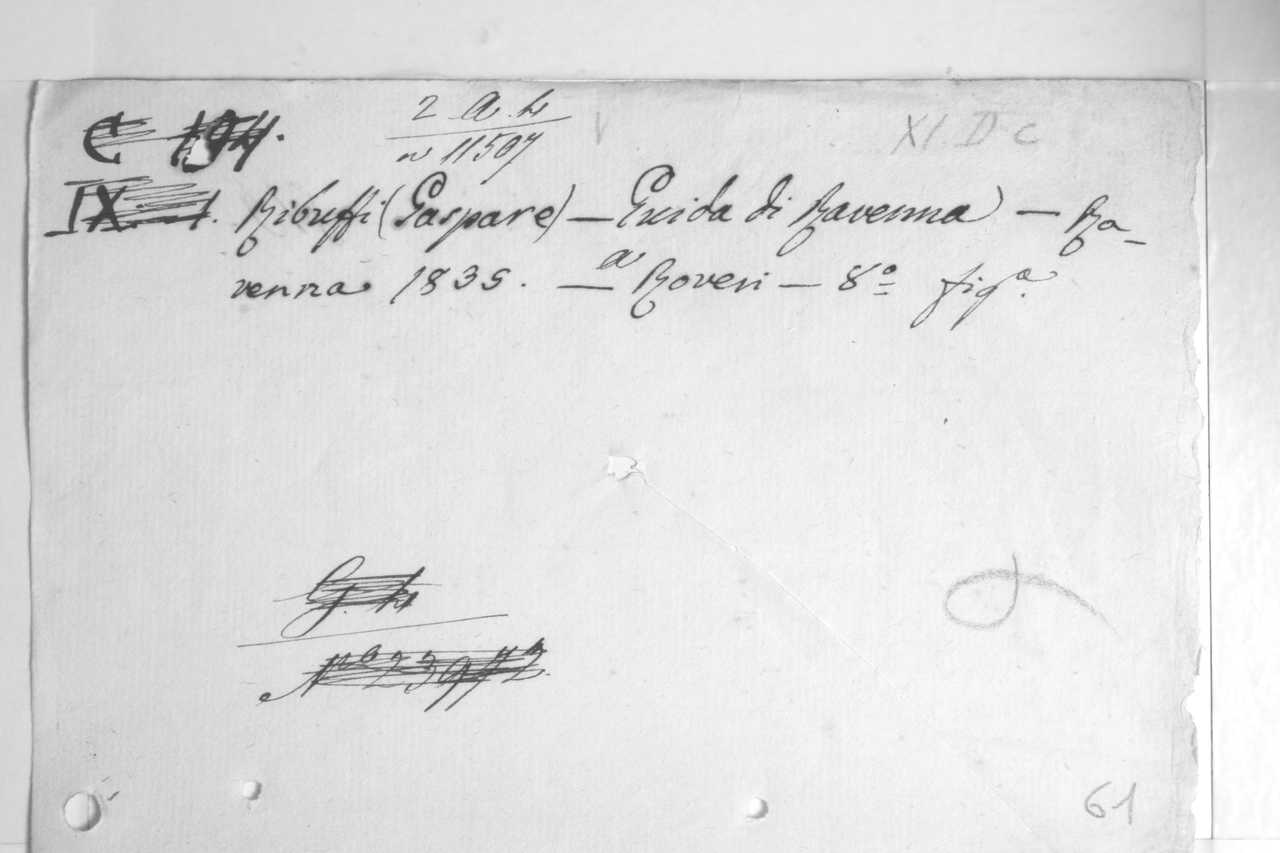 2 A. h
C 194.
n 11507
V
XI. D c
IX. 1. Ribuffi (Gaspare) — Guida di Ravenna — Ra-
venna 1835. — a Roveri — 8º figª.
G. h
Nº 23942.
61